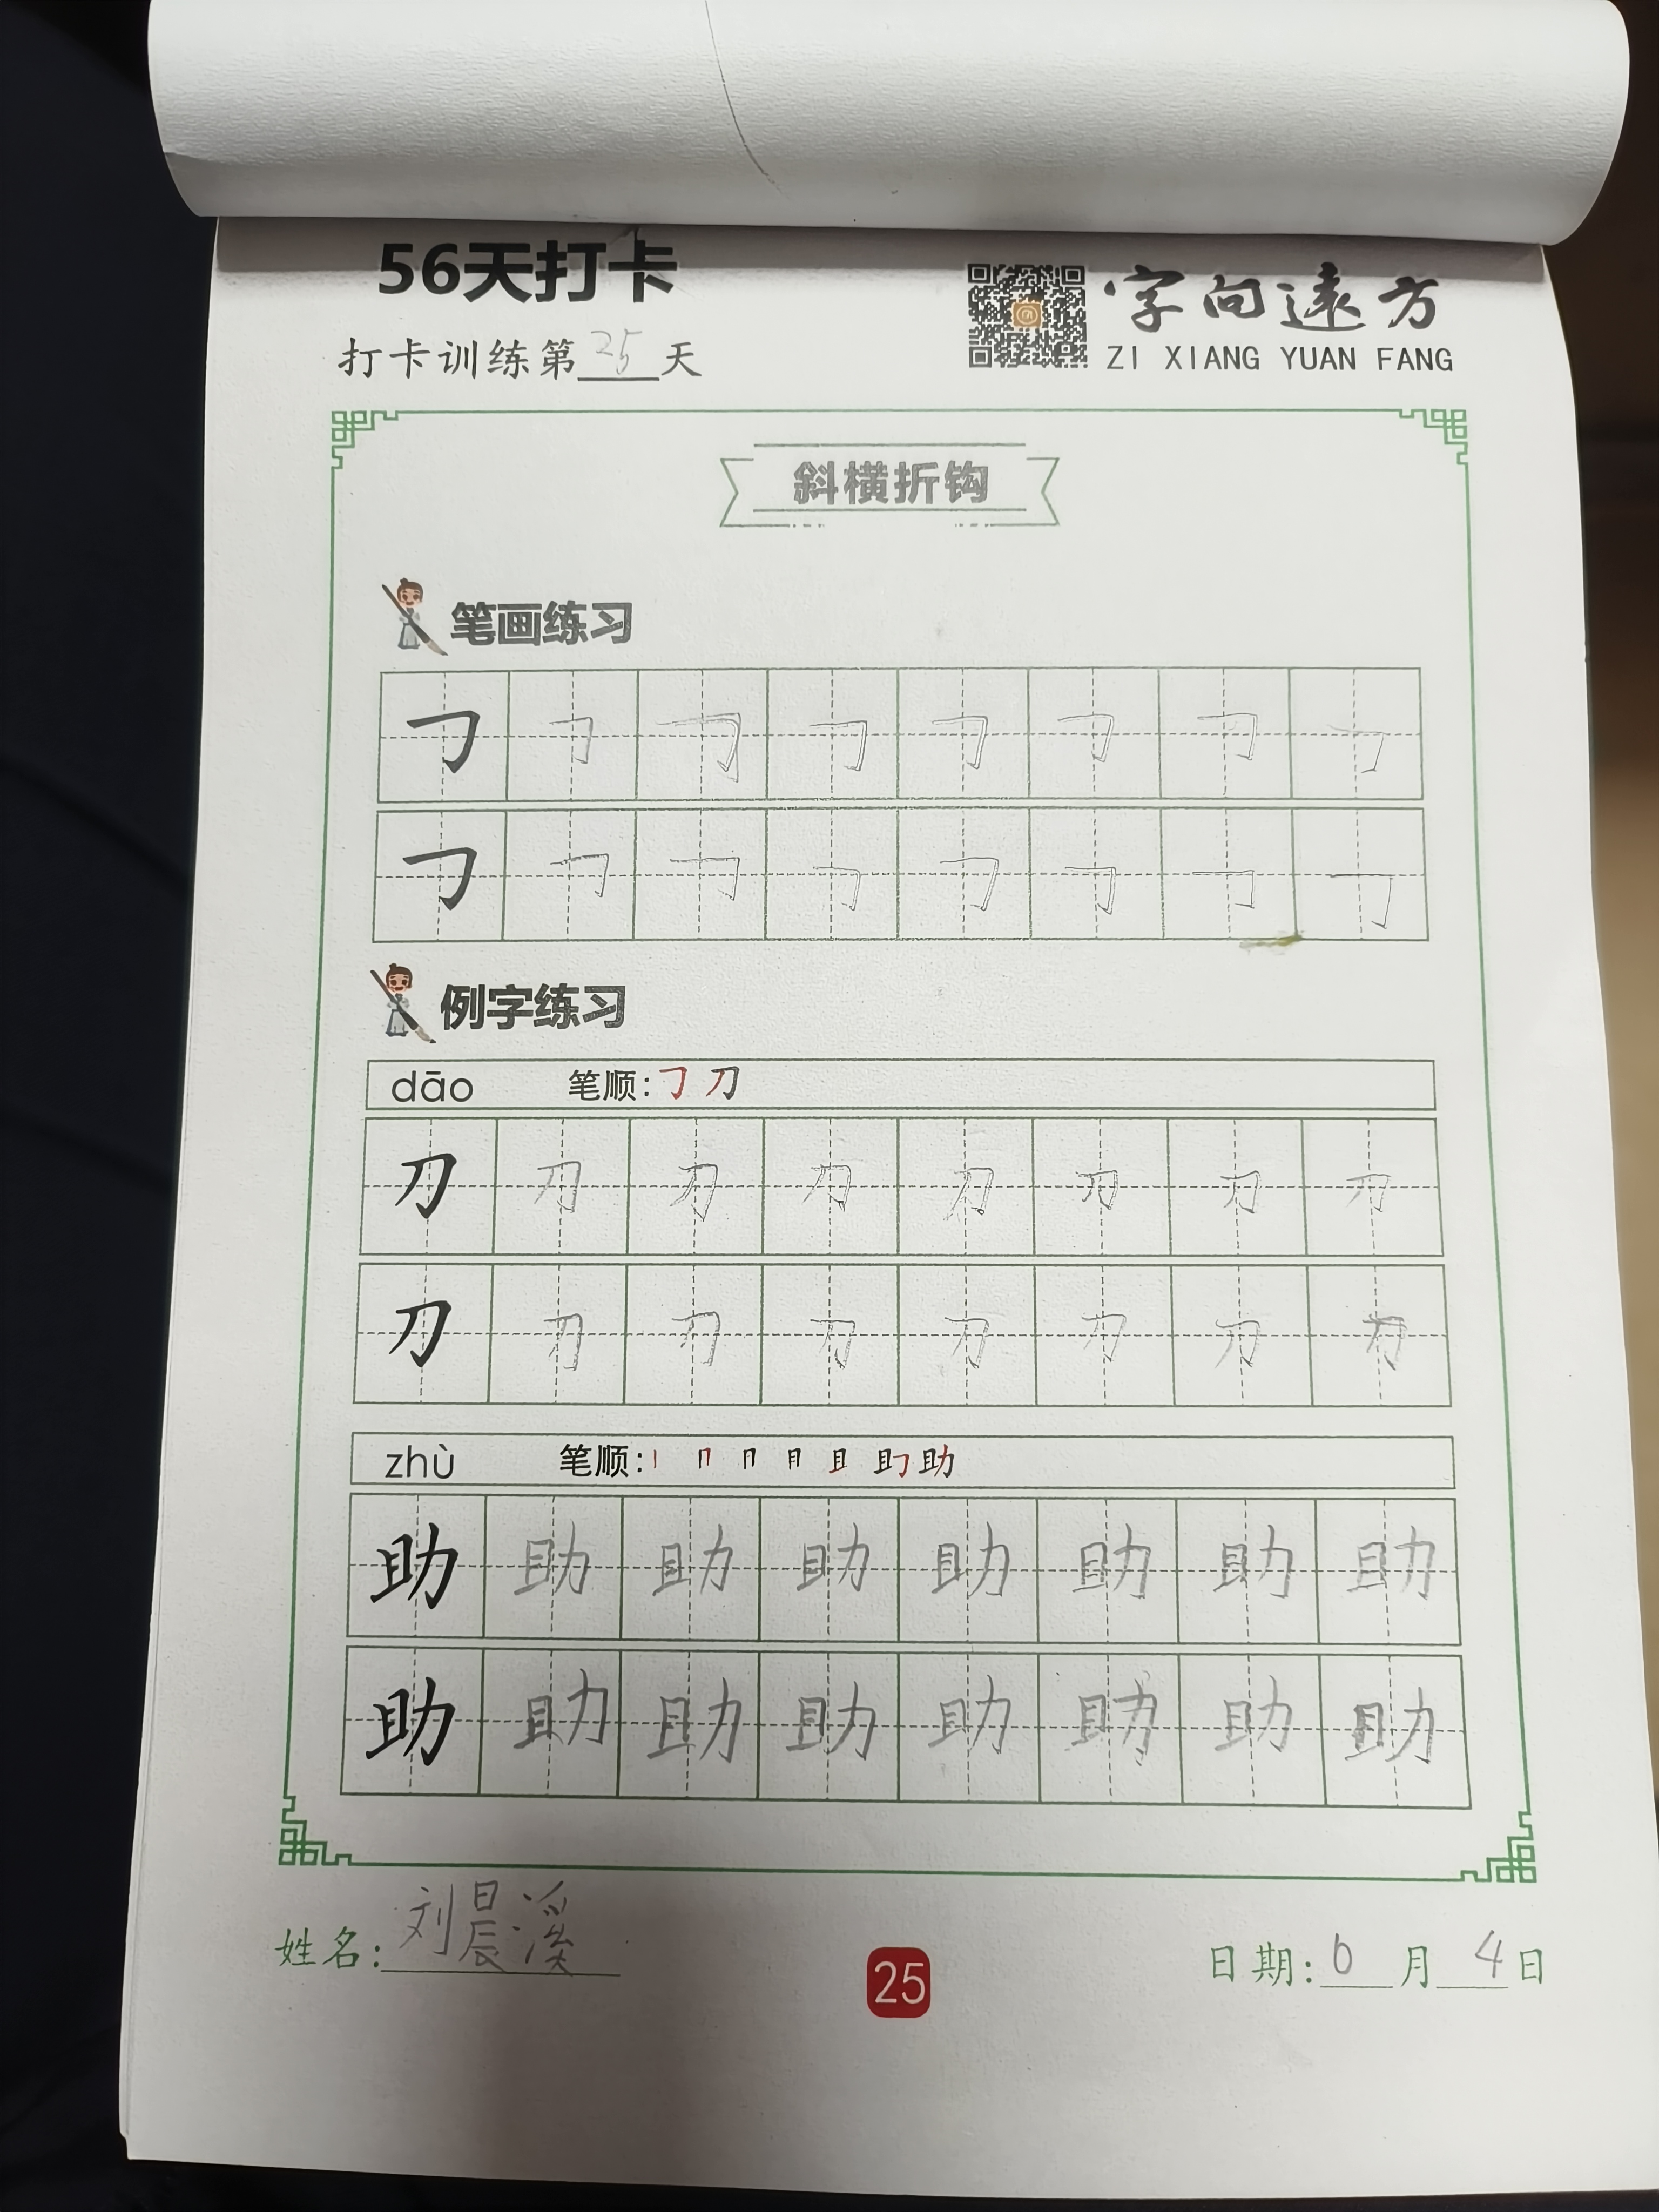 56天打卡
字向远方
打卡训练第25天
ZI XIANG YUAN FANG
斜横折钩
笔画练习
𠃌 𠃌 𠃌 𠃌 𠃌 𠃌 𠃌 𠃌
𠃌 𠃌 𠃌 𠃌 𠃌 𠃌 𠃌 𠃌
例字练习
dāo 笔顺: 𠃌 刀
刀 刀 刀 刀 刀 刀 刀 刀
刀 刀 刀 刀 刀 刀 刀 刀
zhù 笔顺: 丨 冂 冃 月 且 助 助
助 助 助 助 助 助 助 助
助 助 助 助 助 助 助 助
姓名: 刘晨溪
25
日期: 6月4日